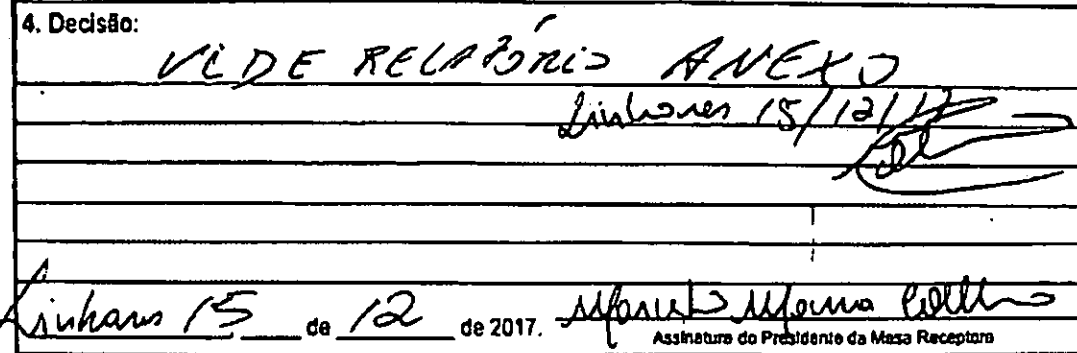 4. Decisão:
VIDE RELATÓRIO ANEXO
Linhares 15/12/17
Linhares 15 de 12 de 2017.
Assinatura do Presidente da Mesa Receptora